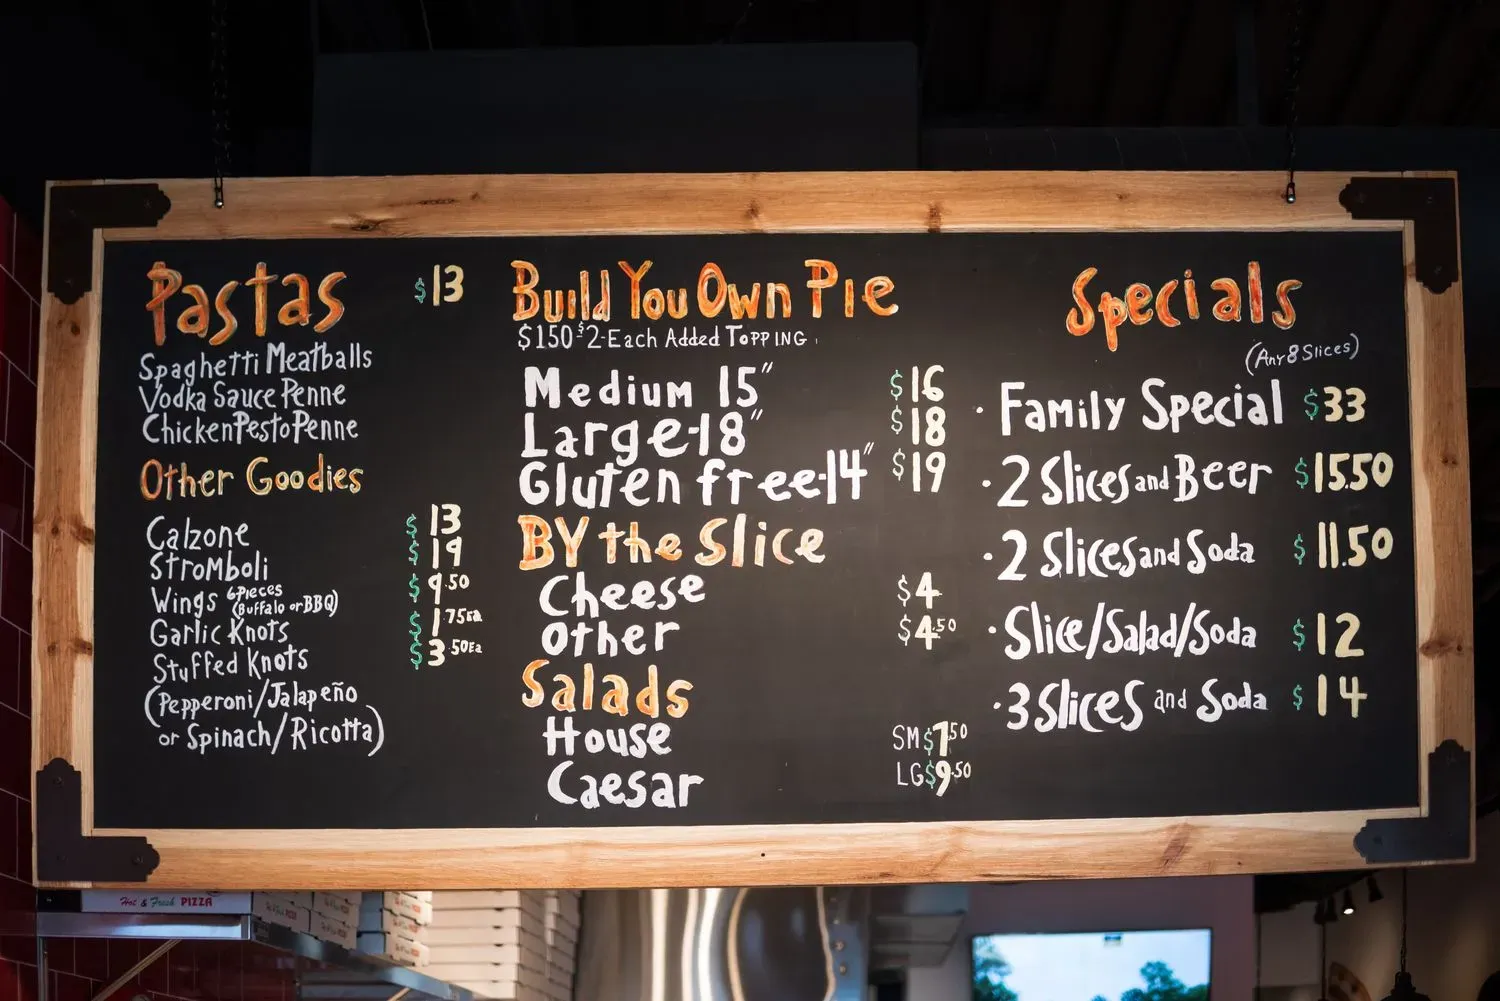 Pastas $13
Spaghetti Meatballs
Vodka Sauce Penne
Chicken Pesto Penne
Other Goodies
Calzone $13
Stromboli $19
Wings 6 Pieces (Buffalo or BBQ) $9.50
Garlic Knots $1.75Ea
Stuffed Knots $3.50Ea
(Pepperoni/Jalapeño
or Spinach/Ricotta)
Build You Own Pie
$150-$2-Each Added Topping
Medium 15" $16
Large-18" $18
Gluten free-14" $19
BY the Slice
Cheese $4
Other $4.50
Salads
House SM $7.50
Caesar LG $9.50
Specials
(Any 8 Slices)
· Family Special $33
· 2 Slices and Beer $15.50
· 2 Slices and Soda $11.50
· Slice/Salad/Soda $12
· 3 Slices and Soda $14
Hot & Fresh PIZZA